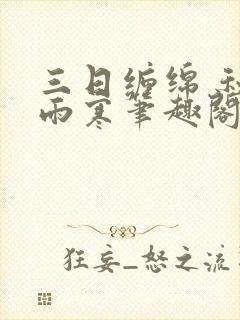 三日缠绵
雨寒笔趣阁
狂妄_怒之流